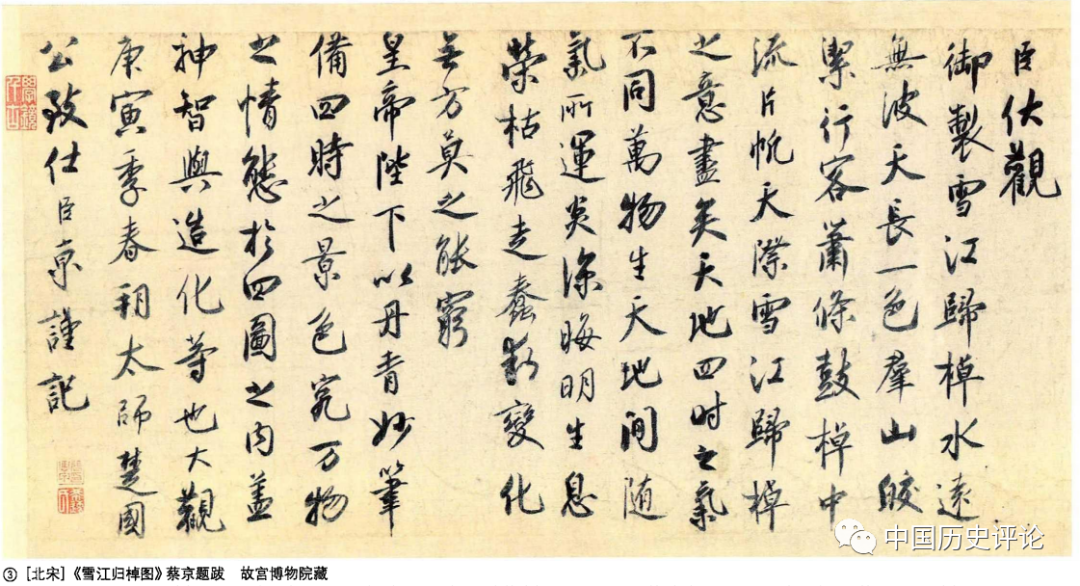 臣伏觀
御製雪江歸棹水遠
無波天長一色羣山皎
潔行客蕭條鼓棹中
流片帆天際雪江歸棹
之意盡矣天地四时之氣
不同萬物生天地間随
氣所運炎凉晦明生息
榮枯飛走蠢動變化
無方莫之能窮
皇帝陛下以丹青妙筆
備四時之景色究万物
之情態於四圖之内盖
神智與造化等也大觀
庚寅季春朔太師楚國
公致仕臣京謹記
中国历史评论
③ [北宋]《雪江归棹图》蔡京题跋 故宫博物院藏